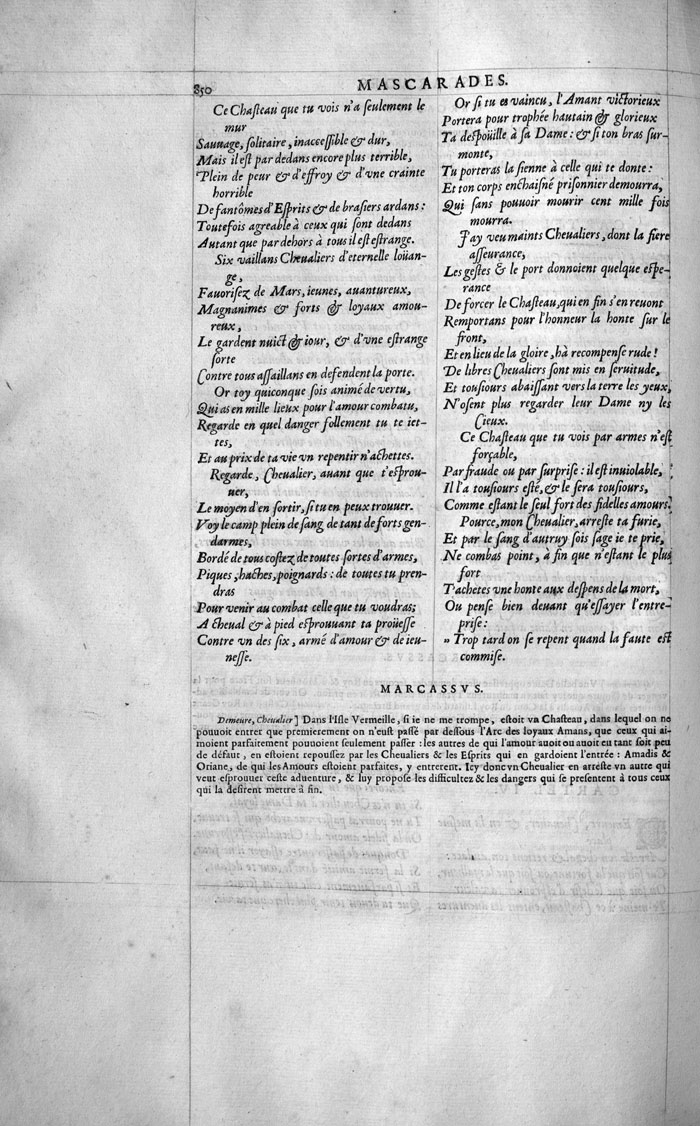 850
MASCARADES.
Ce Chaſteau que tu vois n'a ſeulement le
mur
Sauuage, ſolitaire, inacceſſible & dur,
Mais il eſt par dedans encore plus terrible,
Plein de peur & d'effroy & d'vne crainte
horrible
De fantômes d'Eſprits & de braſiers ardans:
Toutefois agreable à ceux qui ſont dedans
Autant que par dehors à tous il eſt eſtrange.
Six vaillans Cheualiers d'eternelle loüan-
ge,
Fauoriſez de Mars, ieunes, auantureux,
Magnanimes & forts & loyaux amou-
reux,
Le gardent nuict & iour, & d'vne eſtrange
ſorte
Contre tous aſſaillans en defendent la porte.
Or toy quiconque ſois animé de vertu,
Qui as en mille lieux pour l'amour combatu,
Regarde en quel danger follement tu te iet-
tes,
Et au prix de ta vie vn repentir n'achettes.
Regarde, Cheualier, auant que t'eſprou-
uer,
Le moyen d'en ſortir, ſi tu en peux trouuer.
Voy le camp plein de ſang de tant de forts gen-
darmes,
Bordé de tous coſtez de toutes ſortes d'armes,
Piques, haches, poignards: de toutes tu pren-
dras
Pour venir au combat celle que tu voudras;
A cheual & à pied eſprouuant ta proüeſſe
Contre vn des ſix, armé d'amour & de ieu-
neſſe.
Or ſi tu es vaincu, l'Amant victorieux
Portera pour trophée hautain & glorieux
Ta deſpoüille à ſa Dame: & ſi ton bras ſur-
monte,
Tu porteras la ſienne à celle qui te donte:
Et ton corps enchaiſné priſonnier demourra,
Qui ſans pouuoir mourir cent mille fois
mourra.
J'ay veu maints Cheualiers, dont la fiere
aſſeurance,
Les geſtes & le port donnoient quelque eſpe-
rance
De forcer le Chaſteau, qui en fin s'en reuont
Remportans pour l'honneur la honte ſur le
front,
Et en lieu de la gloire, hà recompenſe rude!
De libres Cheualiers ſont mis en ſeruitude,
Et touſiours abaiſſant vers la terre les yeux,
N'oſent plus regarder leur Dame ny les
Cieux.
Ce Chaſteau que tu vois par armes n'eſt
forçable,
Par fraude ou par ſurpriſe: il eſt inuiolable,
Il l'a touſiours eſté, & le ſera touſiours,
Comme eſtant le ſeul fort des fidelles amours.
Pource, mon Cheualier, arreſte ta furie,
Et par le ſang d'autruy ſois ſage ie te prie,
Ne combas point, à fin que n'eſtant le plus
fort
T'achetes vne honte aux deſpens de la mort,
Ou penſe bien deuant qu'eſſayer l'entre-
priſe:
" Trop tard on ſe repent quand la faute eſt
commiſe.
MARCASSVS.
Demeure, Cheualier] Dans l'Iſle Vermeille, ſi ie ne me trompe, eſtoit vn Chaſteau, dans lequel on ne
pouuoit entrer que premierement on n'euſt paſſé par deſſous l'Arc des loyaux Amans, que ceux qui ai-
moient parfaitement pouuoient ſeulement paſſer: les autres de qui l'amour auoit ou auoit eu tant ſoit peu
de défaut, en eſtoient repouſſez par les Cheualiers & les Eſprits qui en gardoient l'entrée: Amadis &
Oriane, de qui les Amours eſtoient parfaites, y entrerent. Icy donc vn Cheualier en arreſte vn autre qui
veut eſprouuer ceſte aduenture, & luy propoſe les difficultez & les dangers qui ſe preſentent à tous ceux
qui la deſirent mettre à fin.